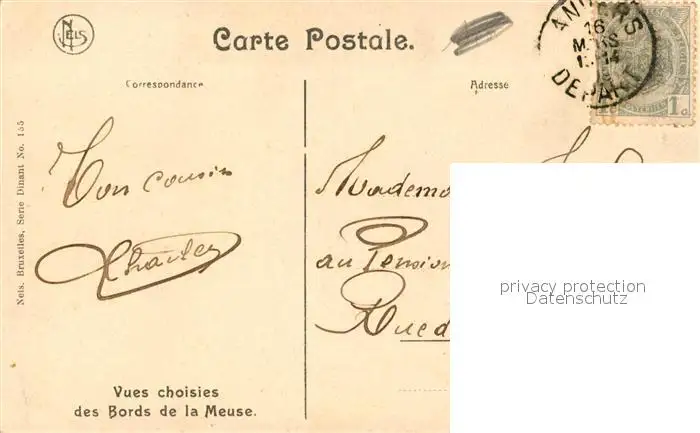 NELS
Carte Postale.
ANVERS
16
MARS
DEPART
1 c
Correspondance
Adresse
Nels, Bruxelles, Serie Dinant No. 155
Ton cousin
Charles
Mademo
au Pension
Rue d
privacy protection
Datenschutz
Vues choisies
des Bords de la Meuse.